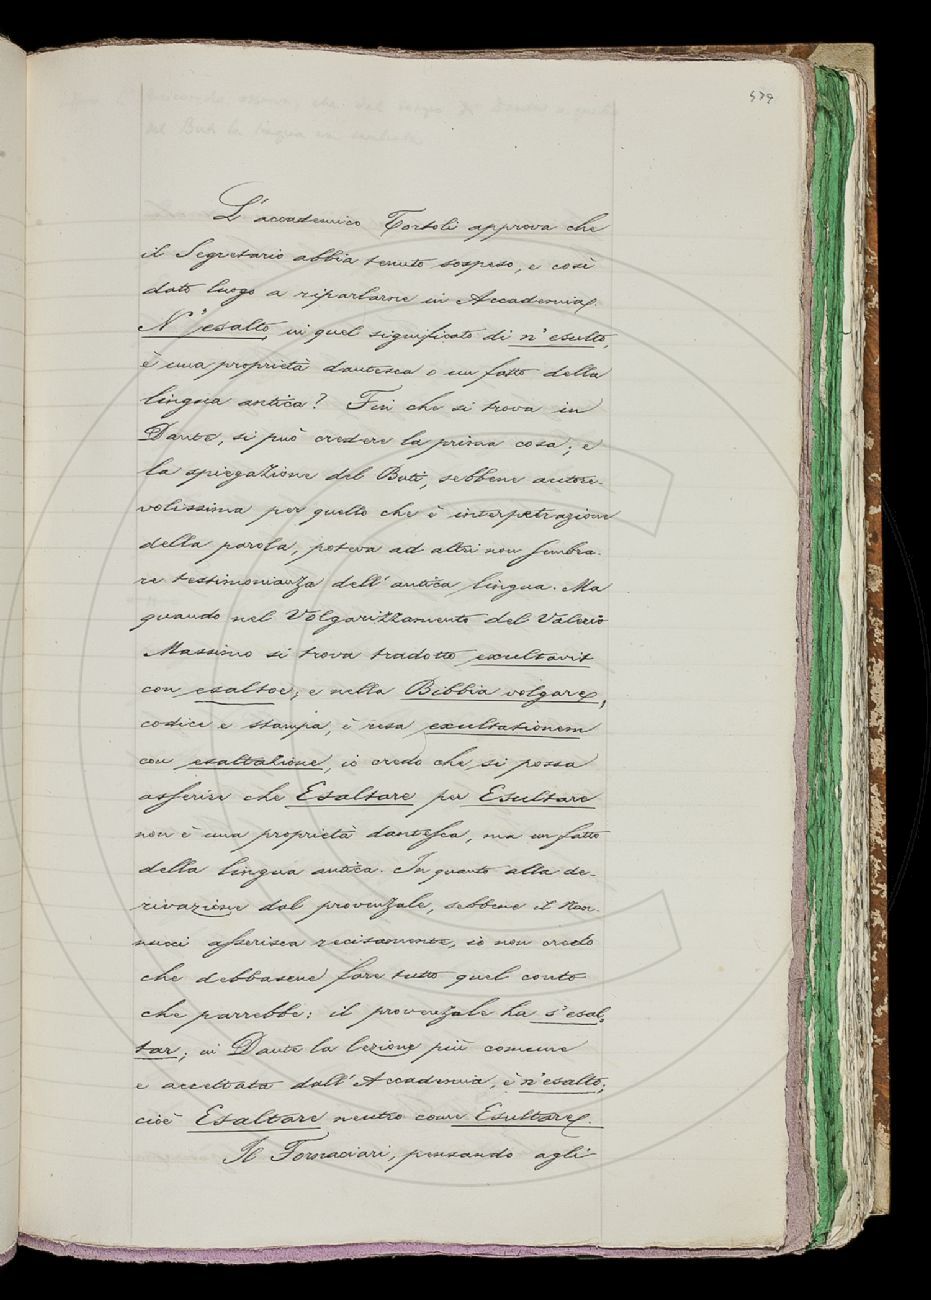 579
L'accademico Tortoli approva che
il Segretario abbia tenuto sospeso, e così
dato luogo a riparlarne in Accademia.
N'esalto, in quel significato di n'esulto,
è una proprietà dantesca o un fatto della
lingua antica? Fin che si trova in
Dante, si può credere la prima cosa; e
la spiegazione del Buti, sebbene autore-
volissima per quello che è interpetrazione
della parola, poteva ad altri non sembra-
re testimonianza dell'antica lingua. Ma
quando nel Volgarizzamento del Valerio
Massimo si trova tradotto exultavit
con esaltoe; e nella Bibbia volgare,
codice e stampa, è resa exultationem
con esaltazione, io credo che si possa
asserire che Esaltare per Esultare
non è una proprietà dantesca, ma un fatto
della lingua antica. In quanto alla de-
rivazione dal provenzale, sebbene il Nan-
nucci asserisca recisamente, io non credo
che debbasene fare tutto quel conto
che parrebbe: il provenzale ha s'esal-
tar; in Dante la lezione più comune
e accettata dall'Accademia, è n'esalto;
cioè Esaltare neutro come Esultare.
Il Fornaciari, pensando agli